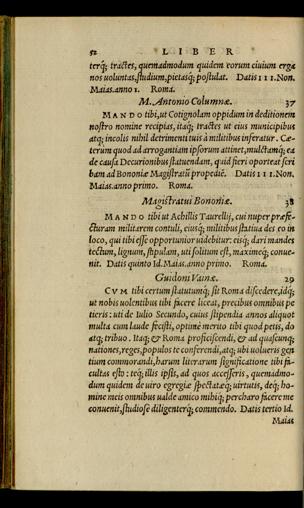 52 LIBER
terq́; tractes, quemadmodum quidem eorum ciuium erga
nos uoluntas, studium, pietasq́; postulat. Datis III. Non.
Maias. anno I. Roma.
M. Antonio Columnæ. 37
MANDO tibi, ut Cotignolam oppidum in deditionem
nostro nomine recipias, itaq́; tractes ut eius municipibus
atq́; incolis nihil detrimenti tuis à militibus inferatur. Cæ-
terum quod ad arrogantiam ipsorum attinet, mulctamq́; ea
de causa Decurionibus statuendam, quid fieri oporteat scri
bam ad Bononiæ Magistratũ propediẽ. Datis III. Non.
Maias. anno primo. Roma.
Magistratui Bononiæ. 38
MANDO tibi ut Achillis Taurellij, cui nuper præfe-
cturam militarem contuli, eiusq́; militibus statiua des eo in
loco, qui tibi esse opportunior uidebitur: eisq́; dari mandes
tectum, lignum, stipulam, uti solitum est, maximeq́; conue-
nit. Datis quinto Id. Maias. anno primo. Roma.
Guidoni Vainæ. 29
CVM tibi certum statutumq́; sit Roma discedere, idq́;
ut nobis uolentibus tibi facere liceat, precibus omnibus pe
tieris: uti de Iulio Secundo, cuius stipendia annos aliquot
multa cum laude fecisti, optime merito tibi quod petis, do
atq́; tribuo. Itaq́; & Roma proficiscendi, & ad quascunq́;
nationes, reges, populos te conferendi, atq́; ubi uolueris gen
tium commorandi, harum literarum significatione tibi fa-
cultas esto: teq́; illis ipsis, ad quos accesseris, quemadmo-
dum quidem de uiro egregiæ spectatæq́; uirtutis, deq́; ho-
mine meis omnibus ualde amico mihiq́; percharo facere me
conuenit, studiosè diligenterq́; commendo. Datis tertio Id.
Maias